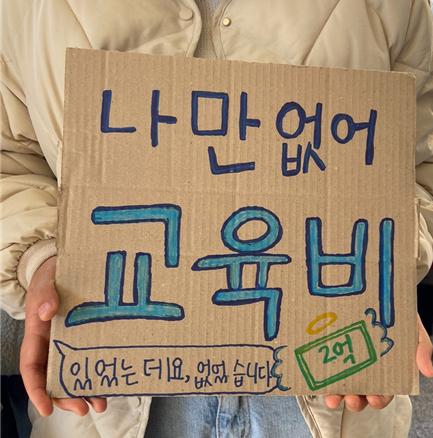 나만없어
교육비
있었는데요, 없었습니다
2억